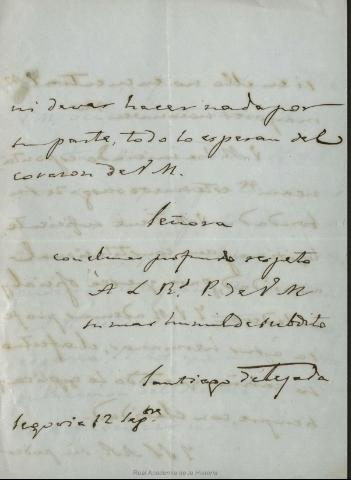 ni deven hacer nada por
su parte, todo lo esperan del
corazon de V. M.
Señora
con el mas profundo respeto
A L Rs. P. de V M
su mas humilde subdito
Santiago de Tejada
Segovia 12 Sepbre.
Real Academia de la Historia